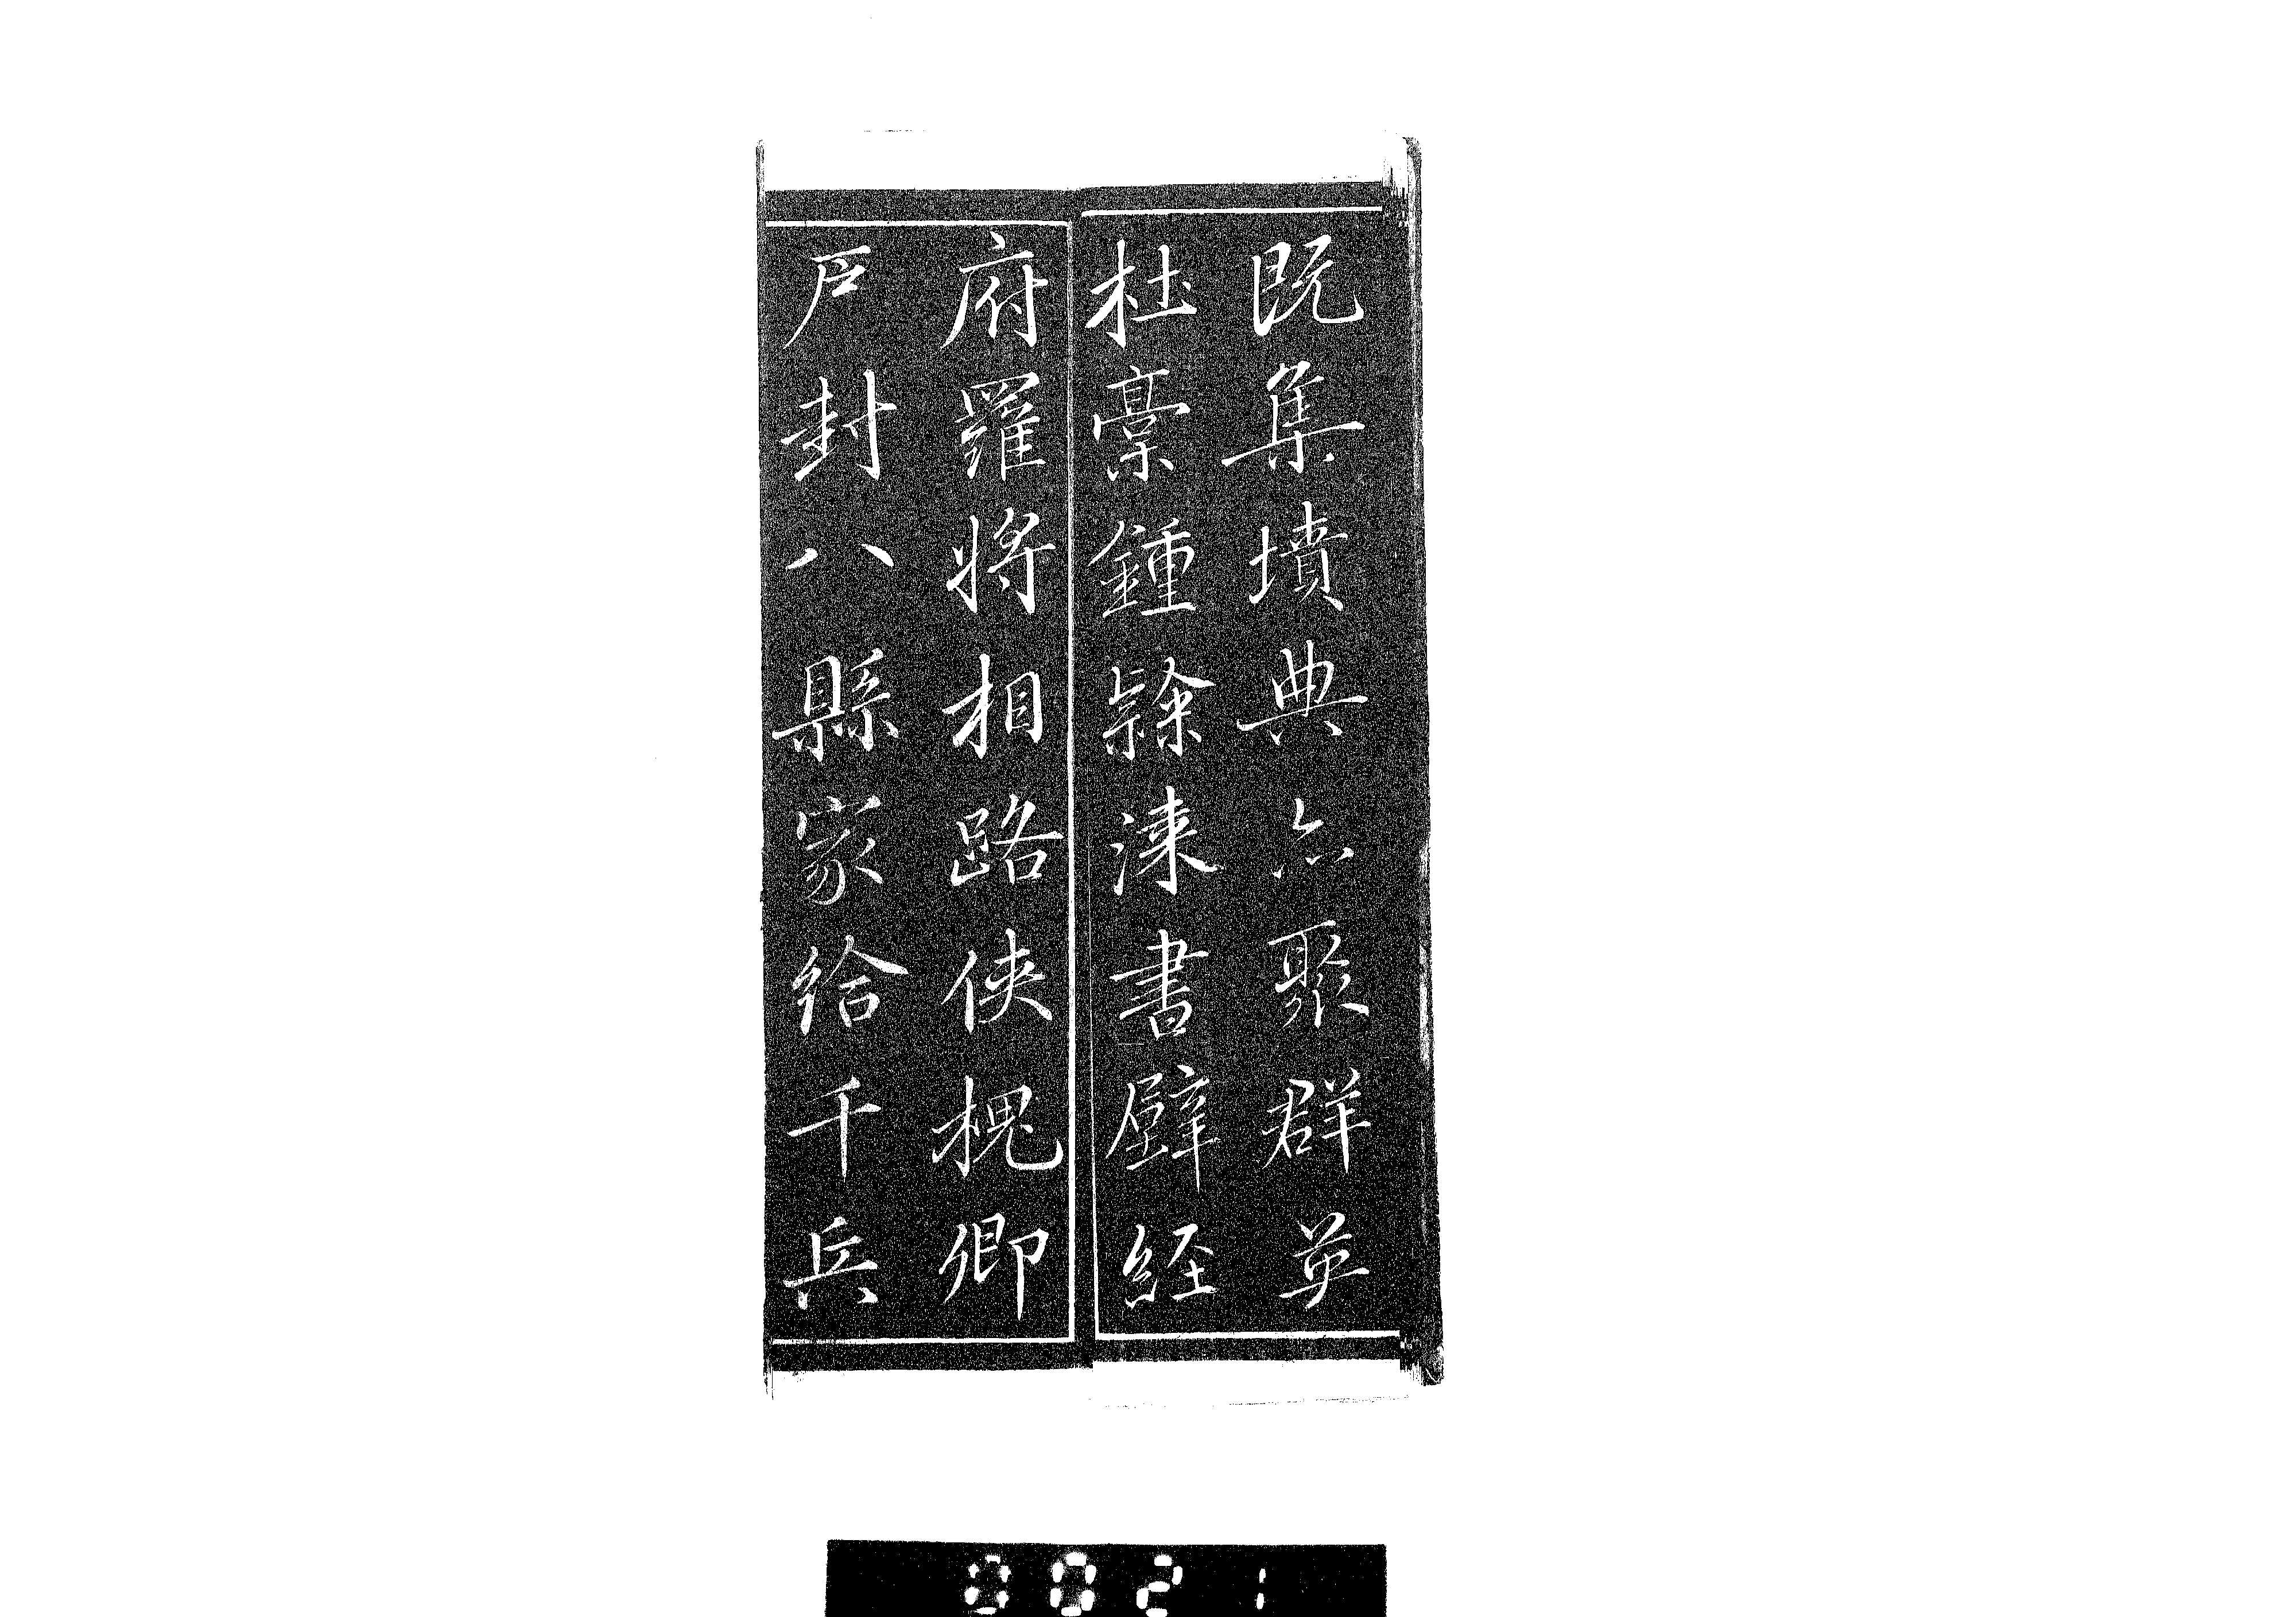 既集墳典亦聚群英
杜稾鍾隸漆書壁經
府羅將相路俠槐卿
戶封八縣家給千兵
0021